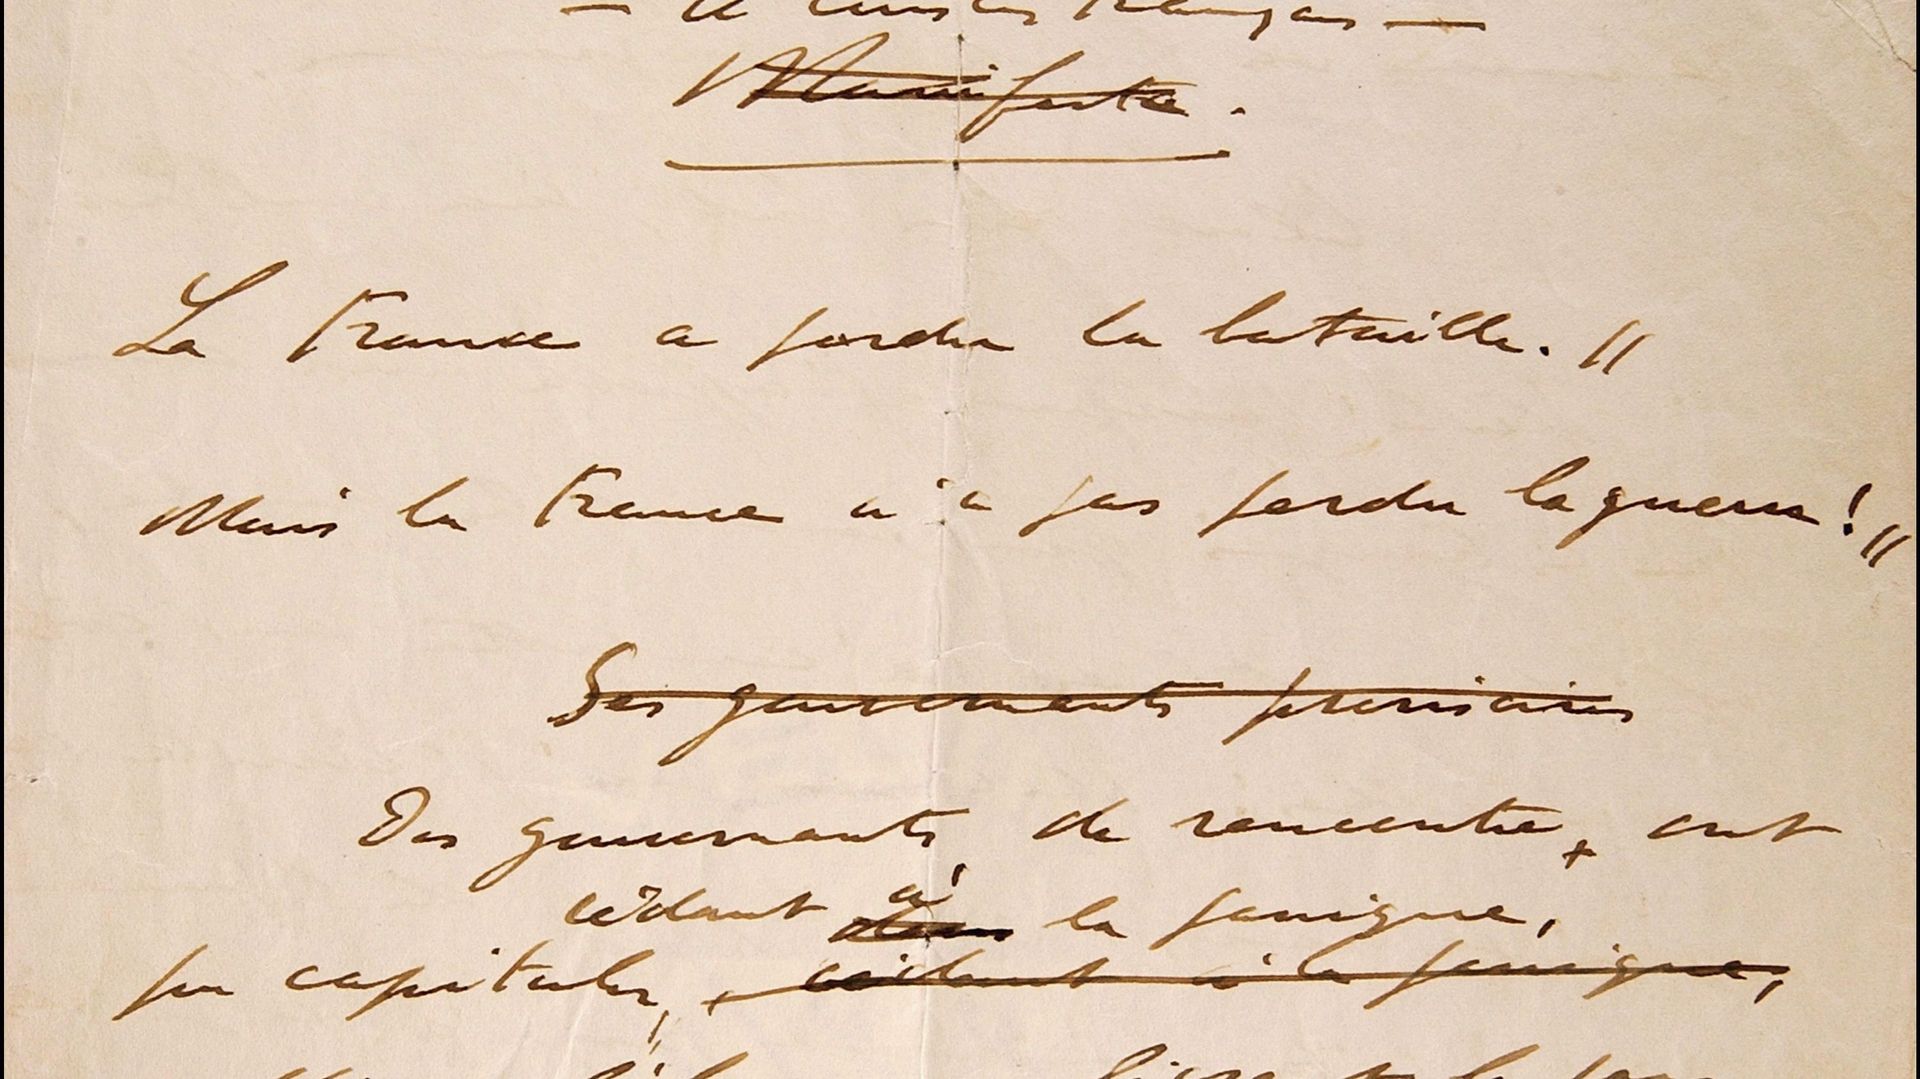 — A tous les Français —
Manifeste.
La France a perdu la bataille. //
Mais la France n'a pas perdu la guerre ! //
Des gouvernants provisoires
Des gouvernants, de rencontre, ont
cédant à la panique,
pu capituler, cédant à la panique,